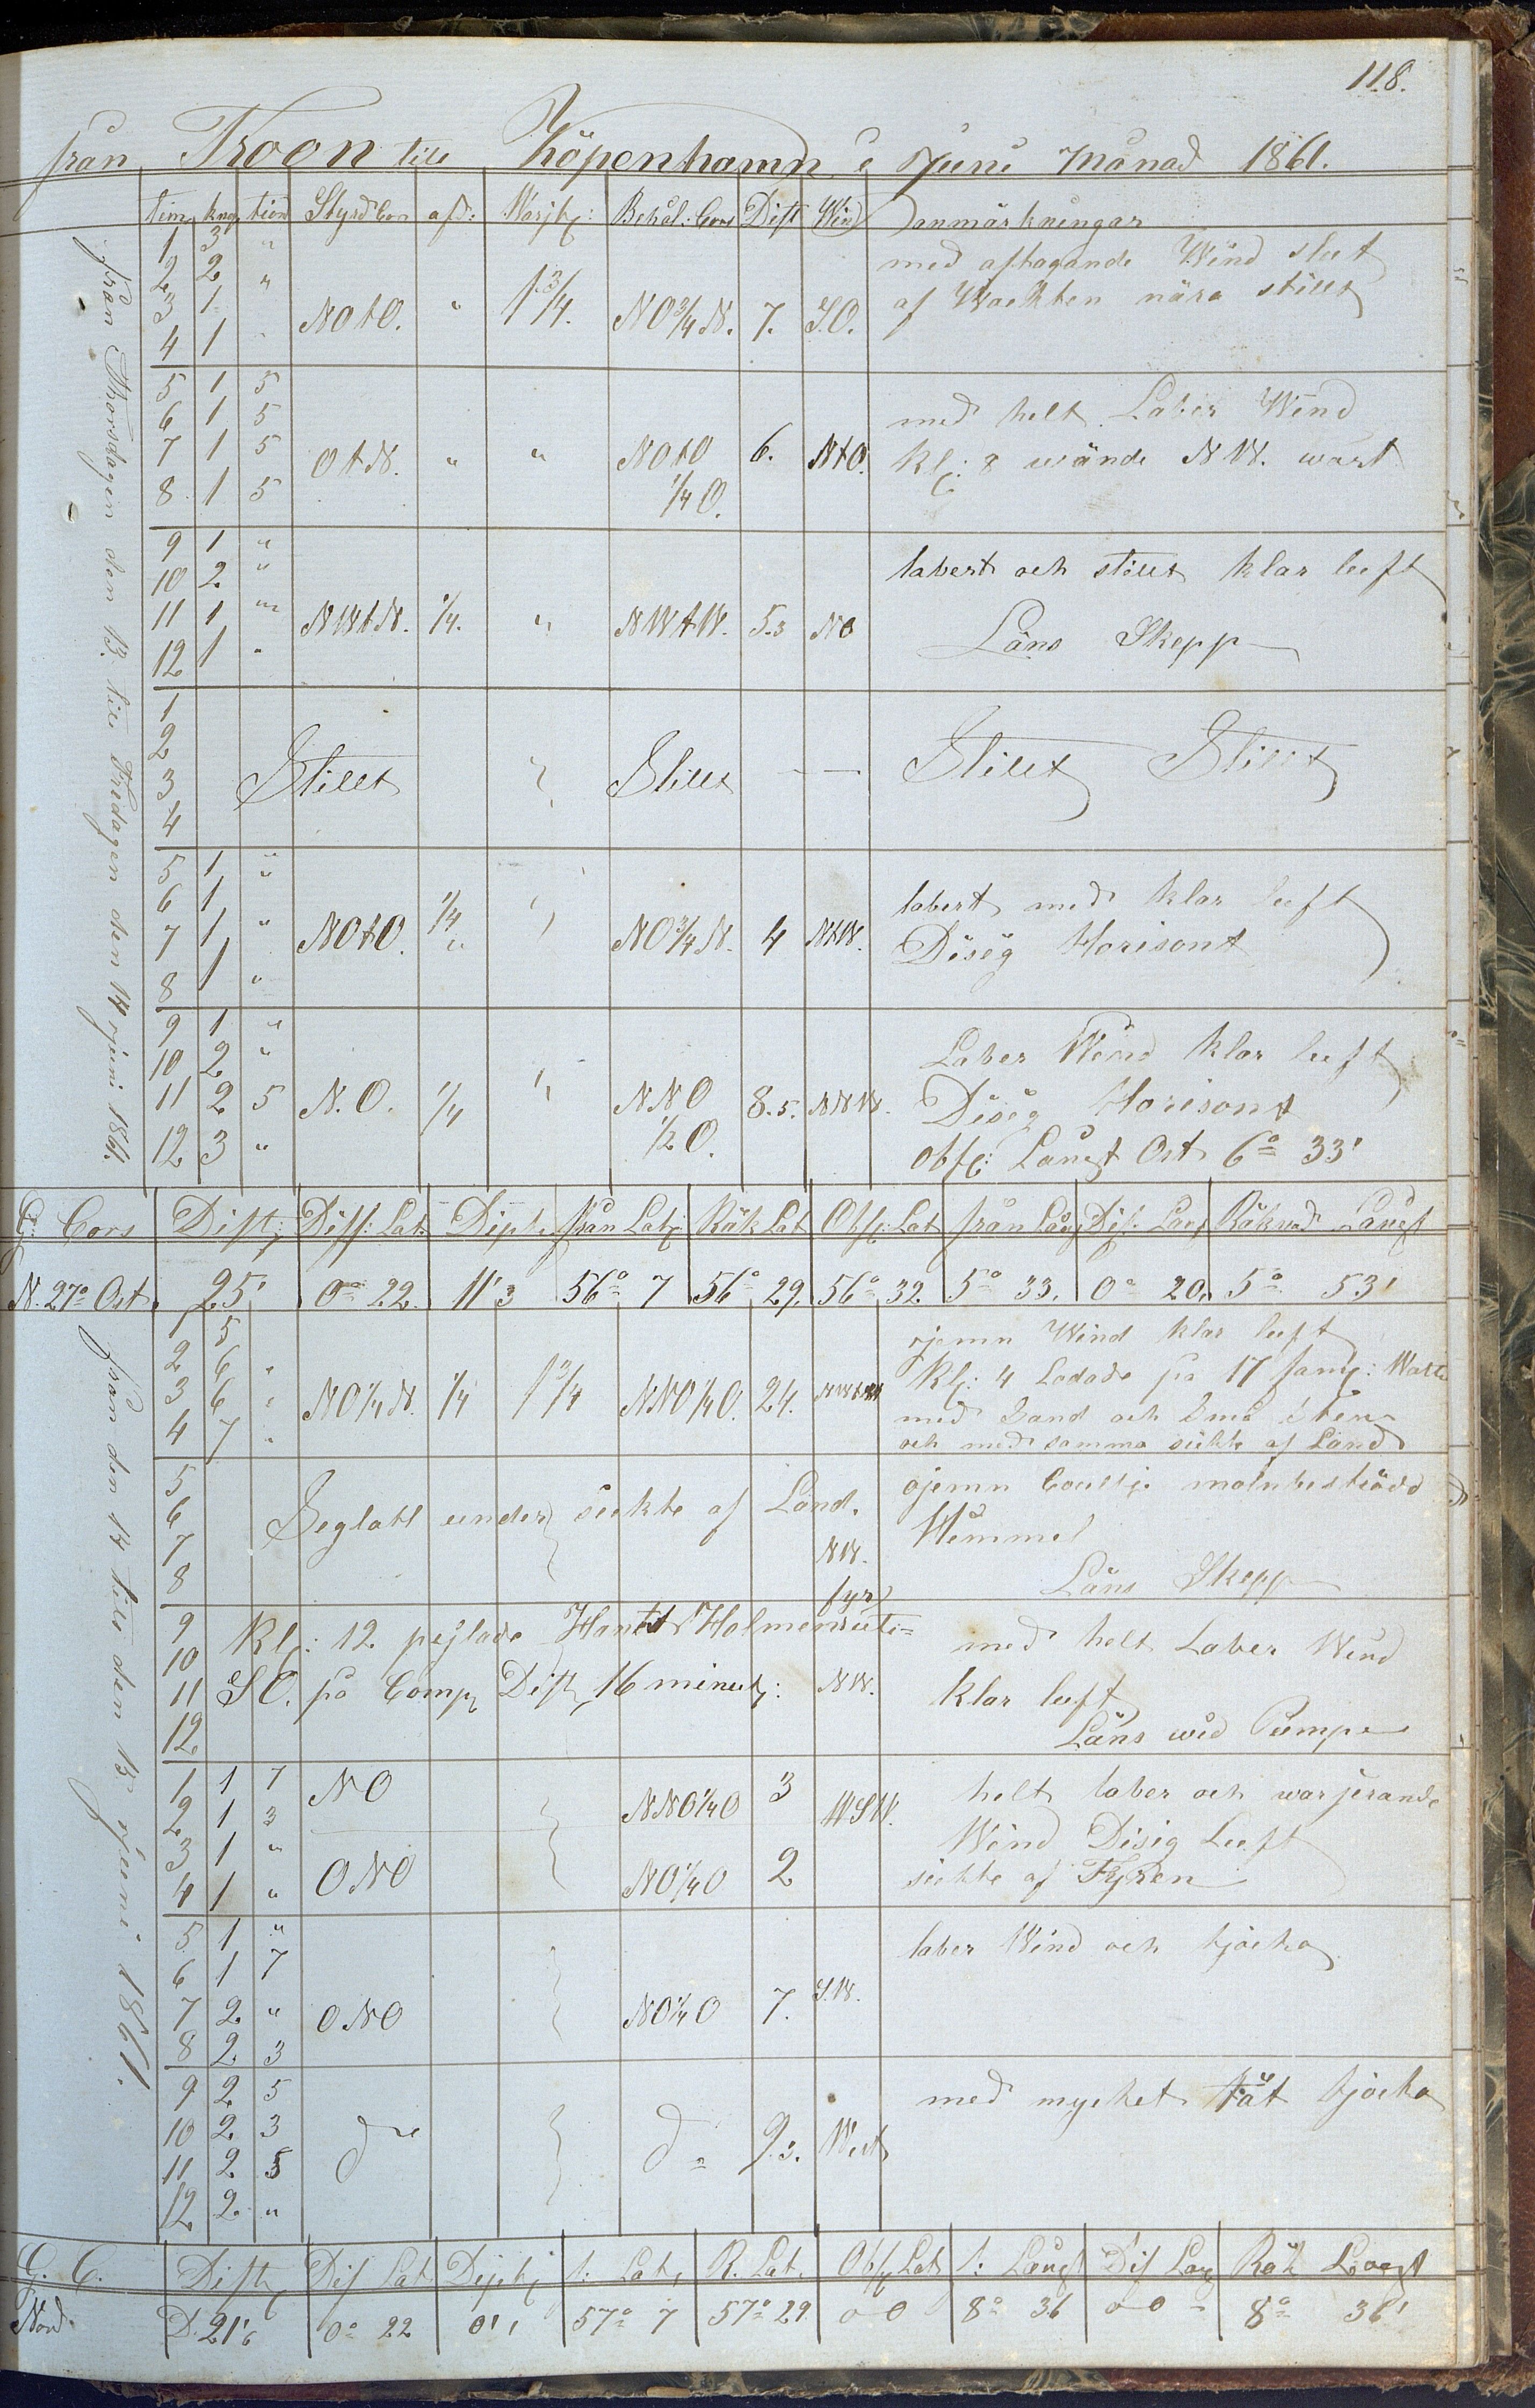 118.
från Troon till Köpenhamn i Juni Månad 1861.
Tim kng tion Styrd Cos afd: Warjt: Behål: Cors Dist Wind anmärkningar
från Thorsdagen den 13. till Fredagen den 14 juni 1861.
1 3 "
2 2 "
3 1
4 1
NOtO. " 1 3/4. NO 3/4 N. 7. S.O.
med aftagande Wind slut
af Wackten nära stillt
5 1 5
6 1 5
7 1 5
8 1 5
OtN. " " NOtO 1/4 O. 6. NtO.
med helt Laber Wind
Kl: 8 wände N W. wart
9 1 "
10 2 "
11 1 "
12 1 "
NWtN. 1/4. " NWtW. 5.3 NO
labert och stillt klar luft
Läns Skepp
1
2
3
4
Stillt Stillt Stillt Stillt
5 1 "
6 1
7 1 "
8 1 "
NOtO. 1/4 " NO 3/4 N. 4 NtW.
labert med klar luft
Disig Horisont
9 1 "
10 2 "
11 2 5
12 3 "
N.O. 1/4 " NNO 1/2 O. 8.5. NNW.
Laber Wind klar luft
Disig Horisont
obs: Långt Ost 6° 33'
G: Cors Dist: Diff: Lat Dept. från Lat: Räk Lat Obs: Lat från Lång Dif: Lang Räknad Långt
N. 27° Ost. 25' 0° 22. 11'3 56° 7 56° 29. 56° 32. 5° 33. 0° 20. 5° 53'
från den 14 till den 15 juni 1861.
1 5
2 6 "
3 6 "
4 7 "
NO 1/4 N. 1/4 1 3/4 NNO 1/4 O. 24.
ojemn Wind klar luft
Kl: 4 Lodade på 17 famn: Watt
med Sand och små sten
och med samma sickte af Land
5
6
7
8
Seglatt under sickte af Land. NW.
ojemn Coultje molnbeströdd
Himmel
Läns Skepp
9
10
11
12
fyr
Kl: 12 pejlade Hanst Holmens uti=
SO. på Comp Dist 16 minut: NW.
med helt Laber Wind
klar luft
Läns wid Pumpe
1 1 7
2 1 3
3 1 "
4 1 "
NO NNO 1/4 O 3 WSW.
ONO NO 1/4 O 2
helt laber och warjerande
Wind Disig Luft
sickte af Fyren
5 1 "
6 1 7
7 2 "
8 2 3
ONO NO 1/4 O 7. S.W.
laber Wind och tjocka
9 2 5
10 2 3
11 2 5
12 2 "
do do 9.3. West
med mycket tät tjocka
G. C. Dist Dif Lat Dept f: Lat, R. Lat. Obs Lat f: Långt Dif Lang Räk Longt
Nord. D. 21'6 0° 22 0'1 57° 7 57° 29 0 0 8° 36 0 0 8° 36'